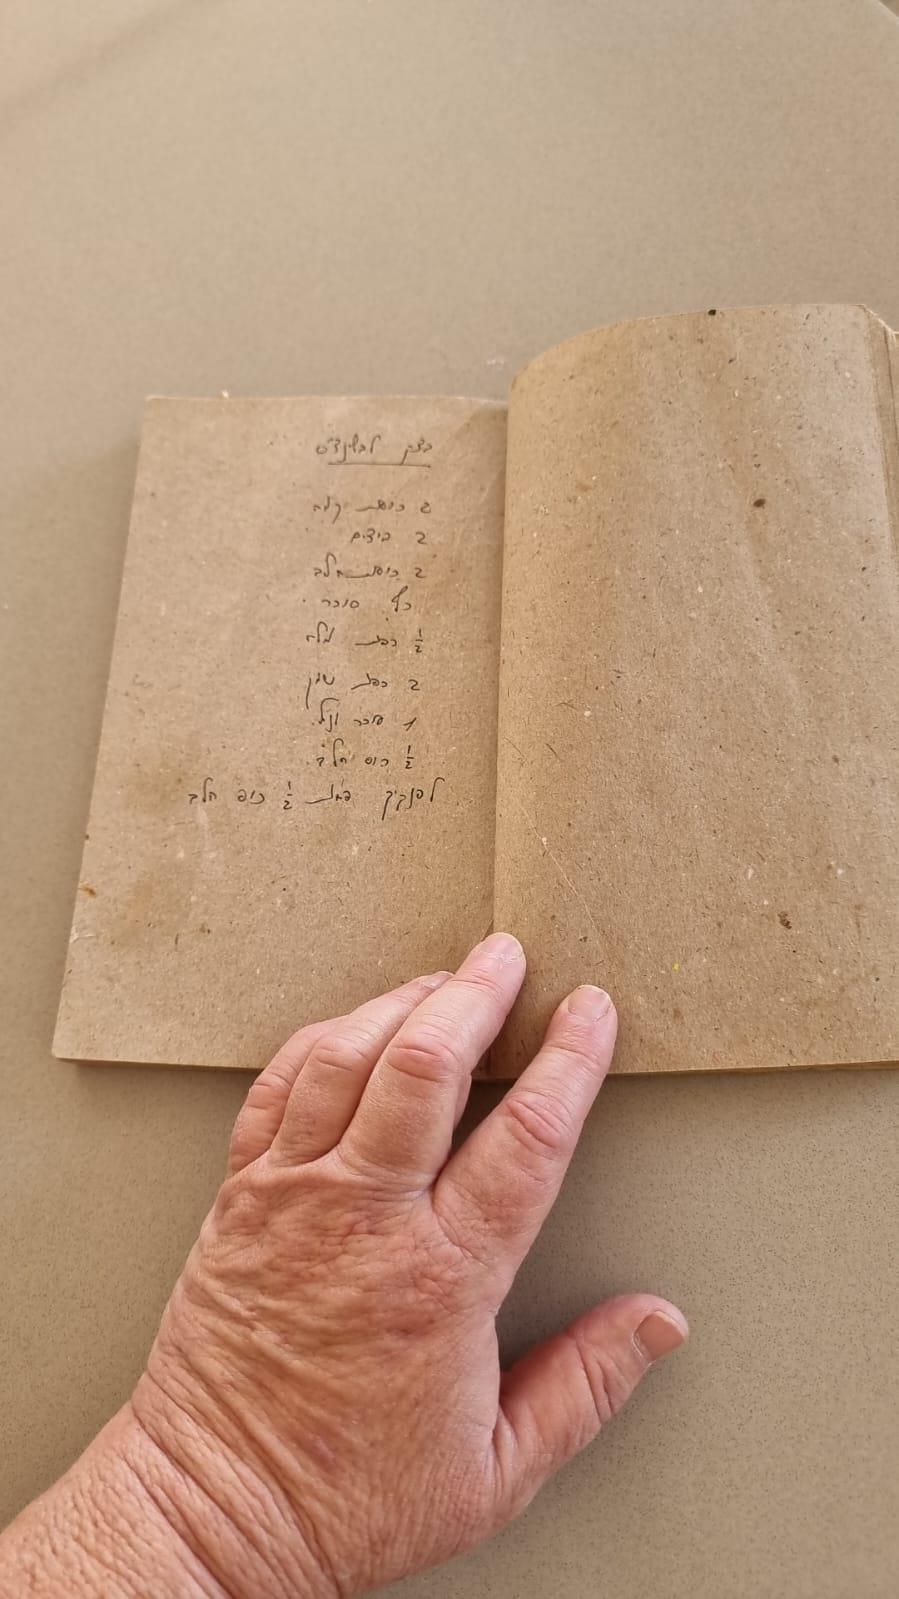 בצק לבלינצ'ס
2 כוסות קמח
2 ביצים
2 כוסות חלב
כף סוכר
½ כפת מלח
2 כפות שמן
1 סוכר וניל.
½ כוס חלב.
לפנקייק פחות ½ כוס חלב